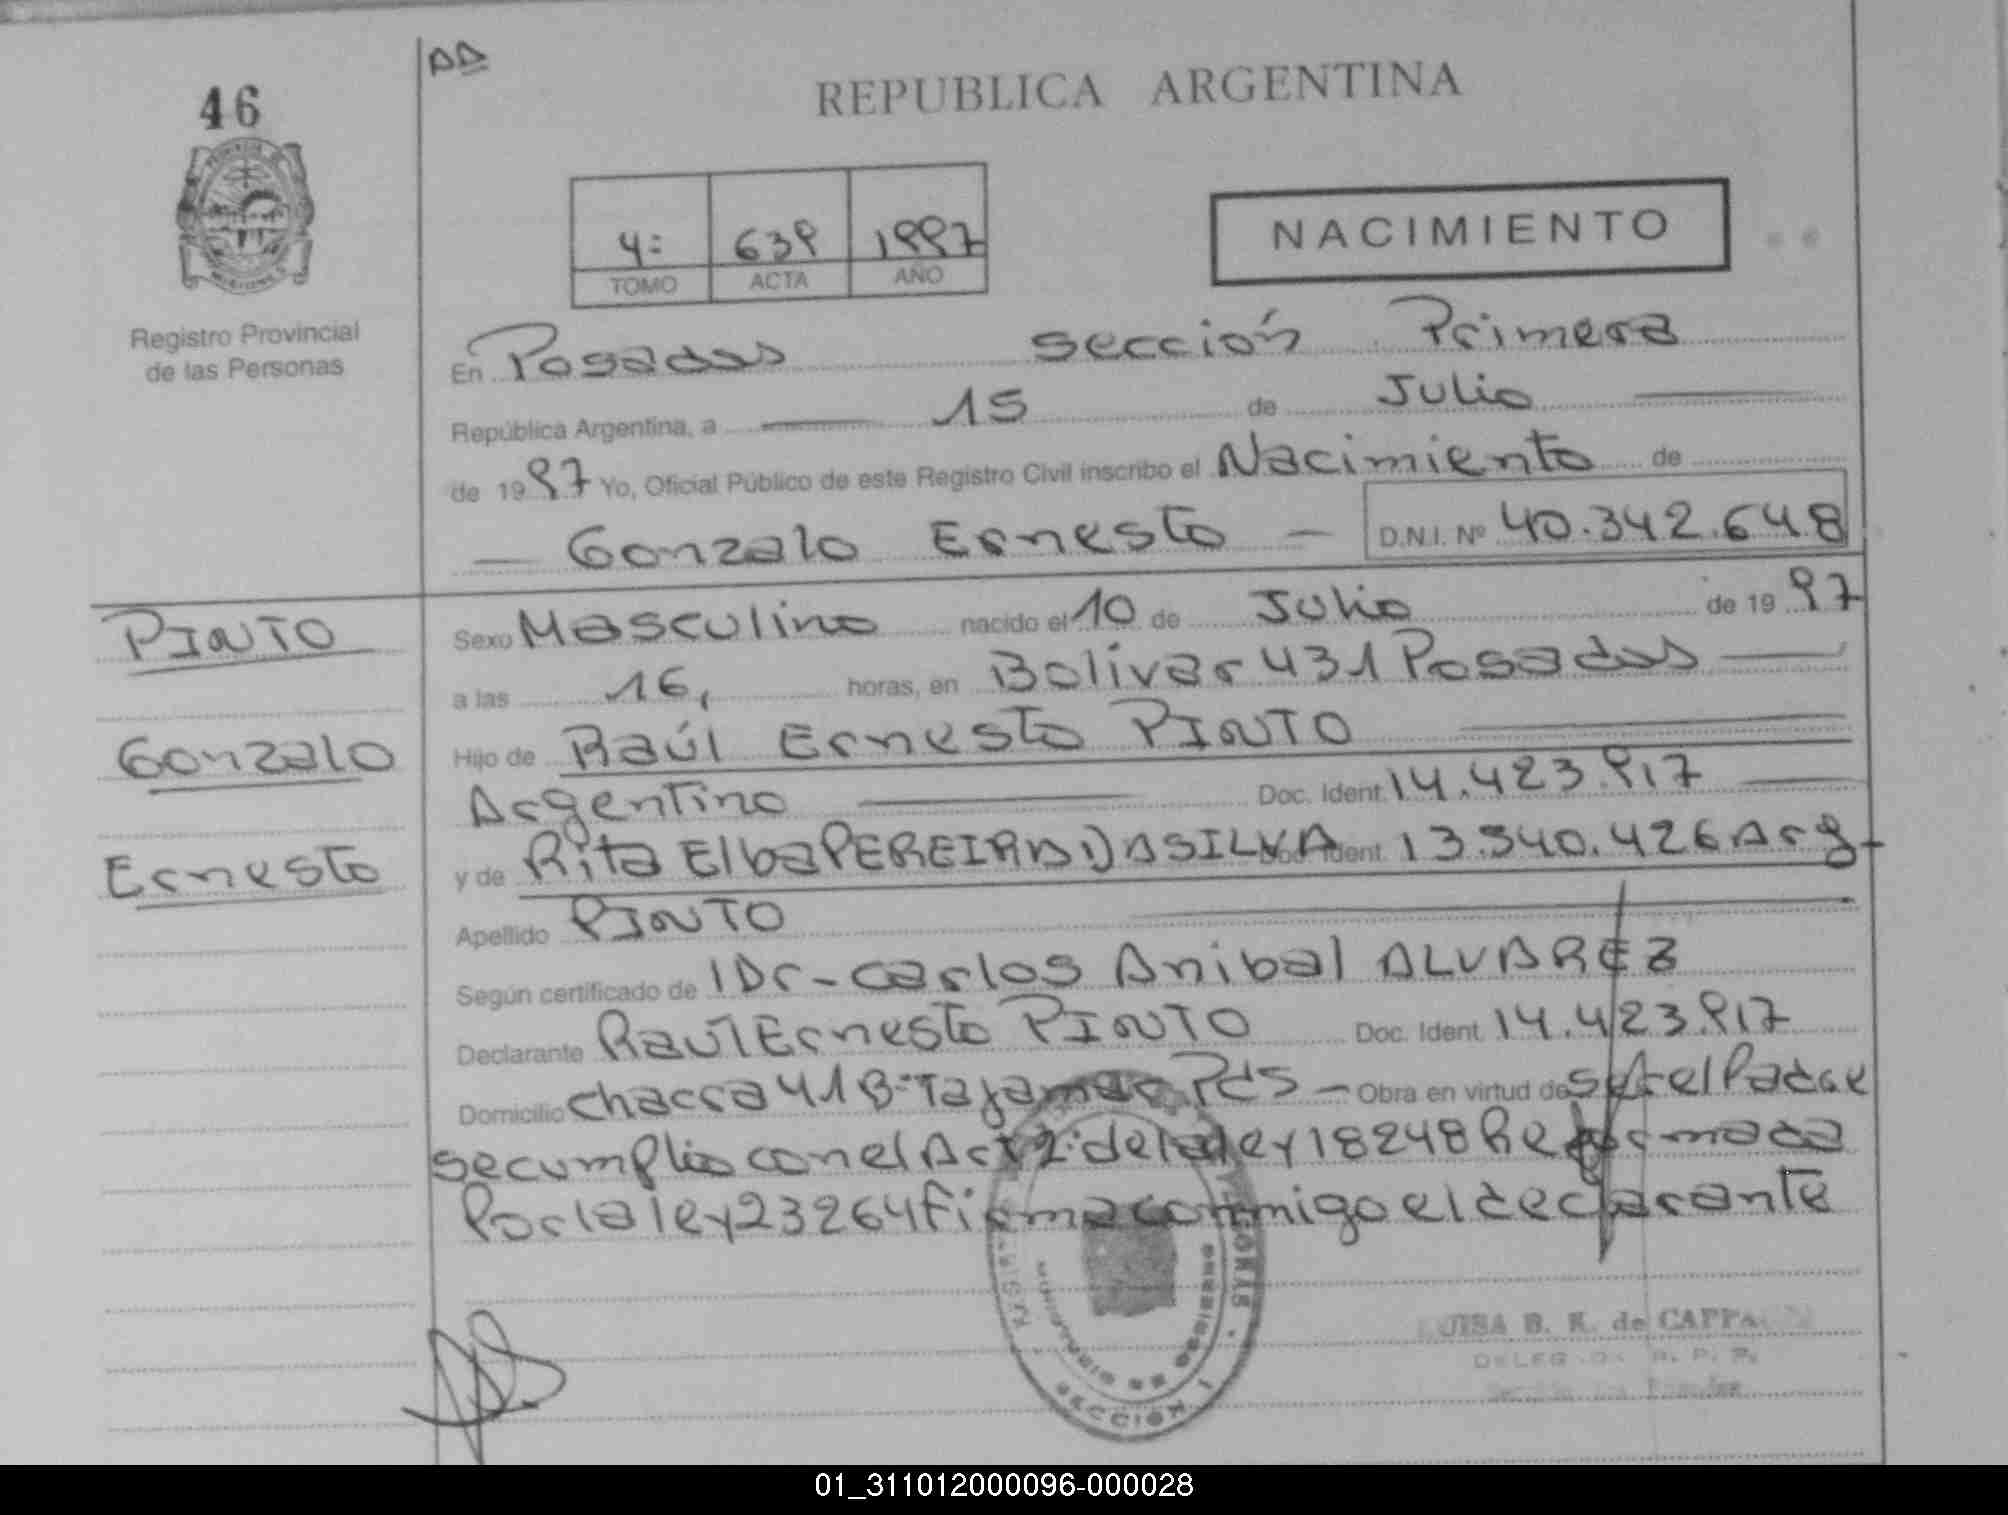 AD
46
REPUBLICA ARGENTINA
4: 639 1997
TOMO ACTA AÑO
NACIMIENTO
Registro Provincial
de las Personas
En Posadas sección Primera
República Argentina, a 15 de Julio
de 1997 Yo, Oficial Público de este Registro Civil inscribo el Nacimiento de
Gonzalo Ernesto D.N.I. Nº 40.342.648
PINTO
Gonzalo
Ernesto
Sexo Masculino nacido el 10 de Julio de 1997
a las 16, horas, en Bolivar 431 Posadas
Hijo de Raúl Ernesto PINTO
Argentino Doc. Ident. 14.423.917
y de Rita Elba PEREIRA DA SILVA Doc. Ident. 13.540.426 Arg-
Apellido PINTO
Según certificado de Dr- Carlos Anibal ALVAREZ
Declarante Raúl Ernesto PINTO Doc. Ident. 14.423.917
Domicilio Chacra 41 Bº Tajamar Pds - Obra en virtud de ser el Padre
se cumplio con el Art 2: de la ley 18248 Reformada
Por la ley 23264 firma conmigo el declarante
SECCIÓN 1
LUISA B. K. de
R. P. P.
01_311012000096-000028